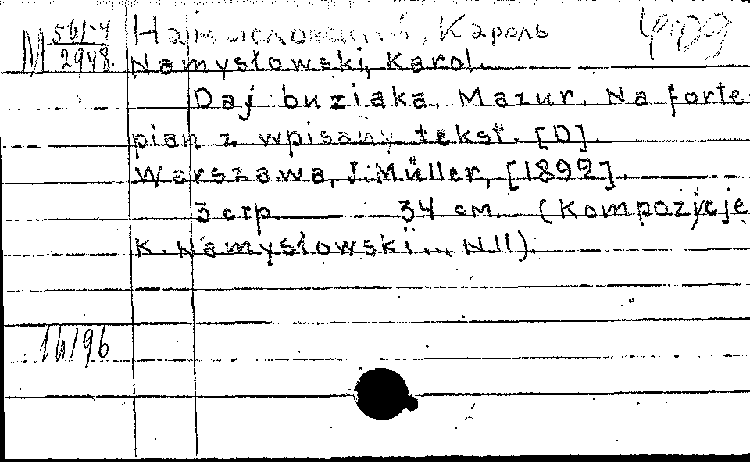 М Намысловский, Кароль
2948 Namysłowski, Karol.
Daj buziaka. Mazur. Na forte-
pian z wpisany tekst. [D].
Warszawa, J. Müller, [1892].
3 стр. 34 см. (Kompozycje
K. Namysłowski... N.11).